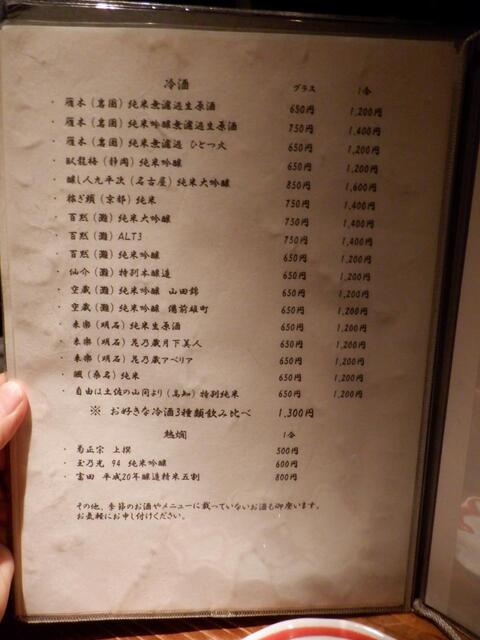 冷酒 グラス 1合
・ 雁木(岩国)純米無濾過生原酒 650円 1,200円
・ 雁木(岩国)純米吟醸無濾過生原酒 750円 1,400円
・ 雁木(岩国)純米無濾過 ひとつ火 650円 1,200円
・ 臥龍梅(静岡)純米吟醸 650円 1,200円
・ 醸し人九平次(名古屋)純米大吟醸 850円 1,600円
・ 稼ぎ頭(京都)純米 750円 1,400円
・ 百黙(灘)純米大吟醸 750円 1,400円
・ 百黙(灘)ALT3 750円 1,400円
・ 百黙(灘)純米吟醸 650円 1,200円
・ 仙介(灘)特別本醸造 650円 1,200円
・ 空蔵(灘)純米吟醸 山田錦 650円 1,200円
・ 空蔵(灘)純米吟醸 備前雄町 650円 1,200円
・ 来楽(明石)純米生原酒 650円 1,200円
・ 来楽(明石)花乃蔵月下美人 650円 1,200円
・ 来楽(明石)花乃蔵アベリア 650円 1,200円
・ 颯(桑名)純米 650円 1,200円
・ 自由は土佐の山間より(高知)特別純米 650円 1,200円
※ お好きな冷酒3種類飲み比べ 1,300円
熱燗 1合
・ 菊正宗 上撰 500円
・ 玉乃光 94 純米吟醸 600円
・ 富田 平成20年醸造精米五割 800円
その他、季節のお酒やメニューに載っていないお酒も御座います。
お気軽にお申し付けください。